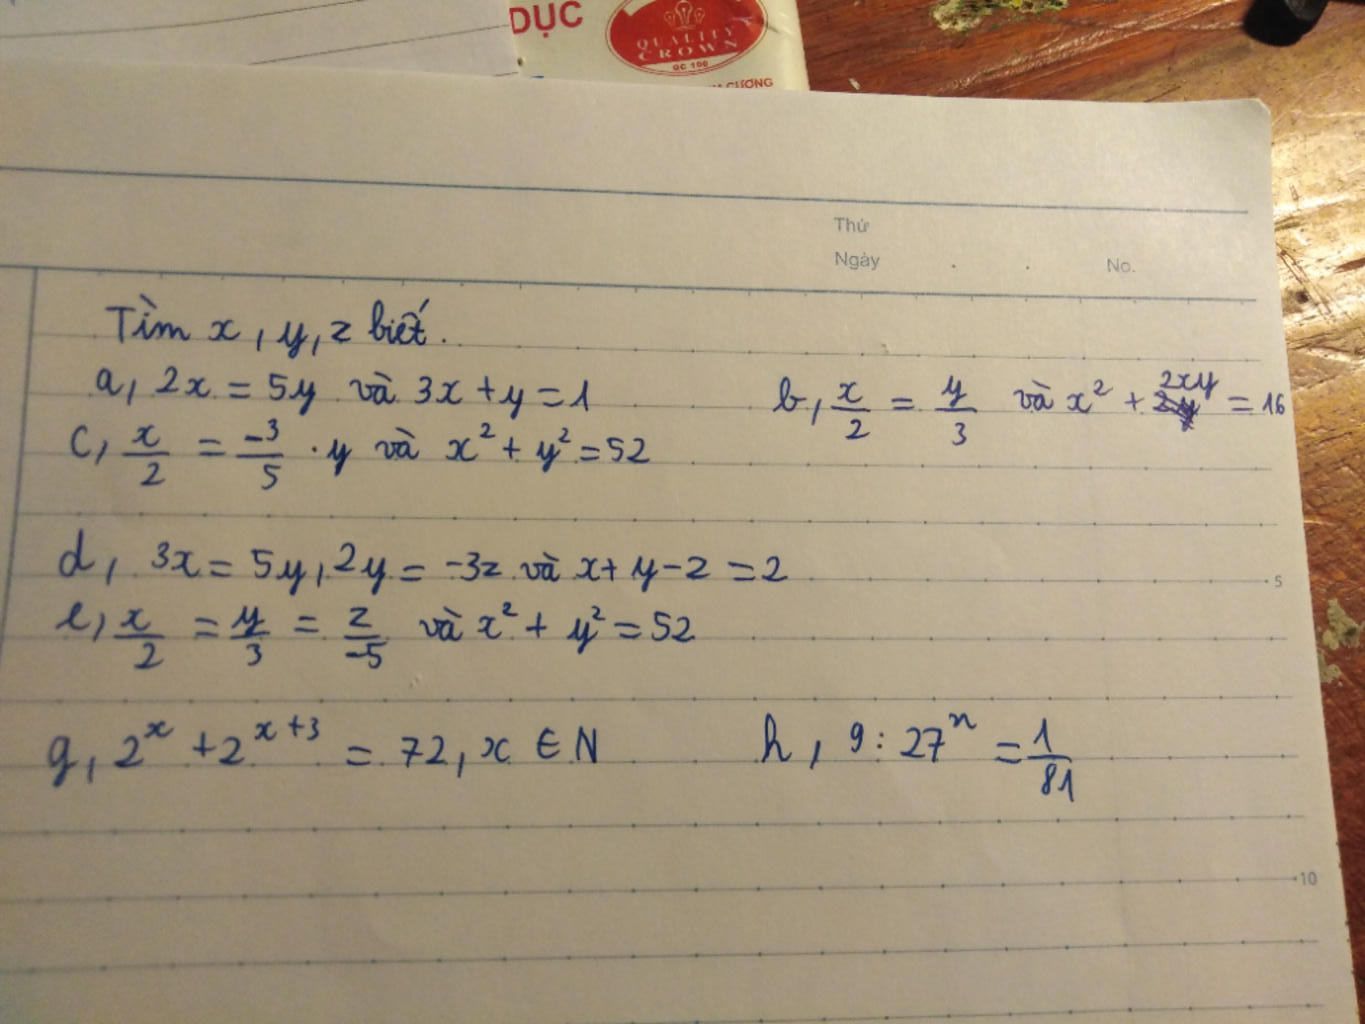 DỤC
QUALITY
CROWN
QC 100
CƯƠNG
Thứ
Ngày
No.
Tìm x, y, z biết.
a, 2x = 5y và 3x + y = 1
b, x/2 = y/3 và x² + 2xy = 16
c, x/2 = -3/5 . y và x² + y² = 52
d, 3x = 5y, 2y = -3z và x + y - z = 2
5
e, x/2 = y/3 = z/-5 và x² + y² = 52
g, 2^x + 2^(x+3) = 72, x ∈ N
h, 9 : 27^n = 1/81
10